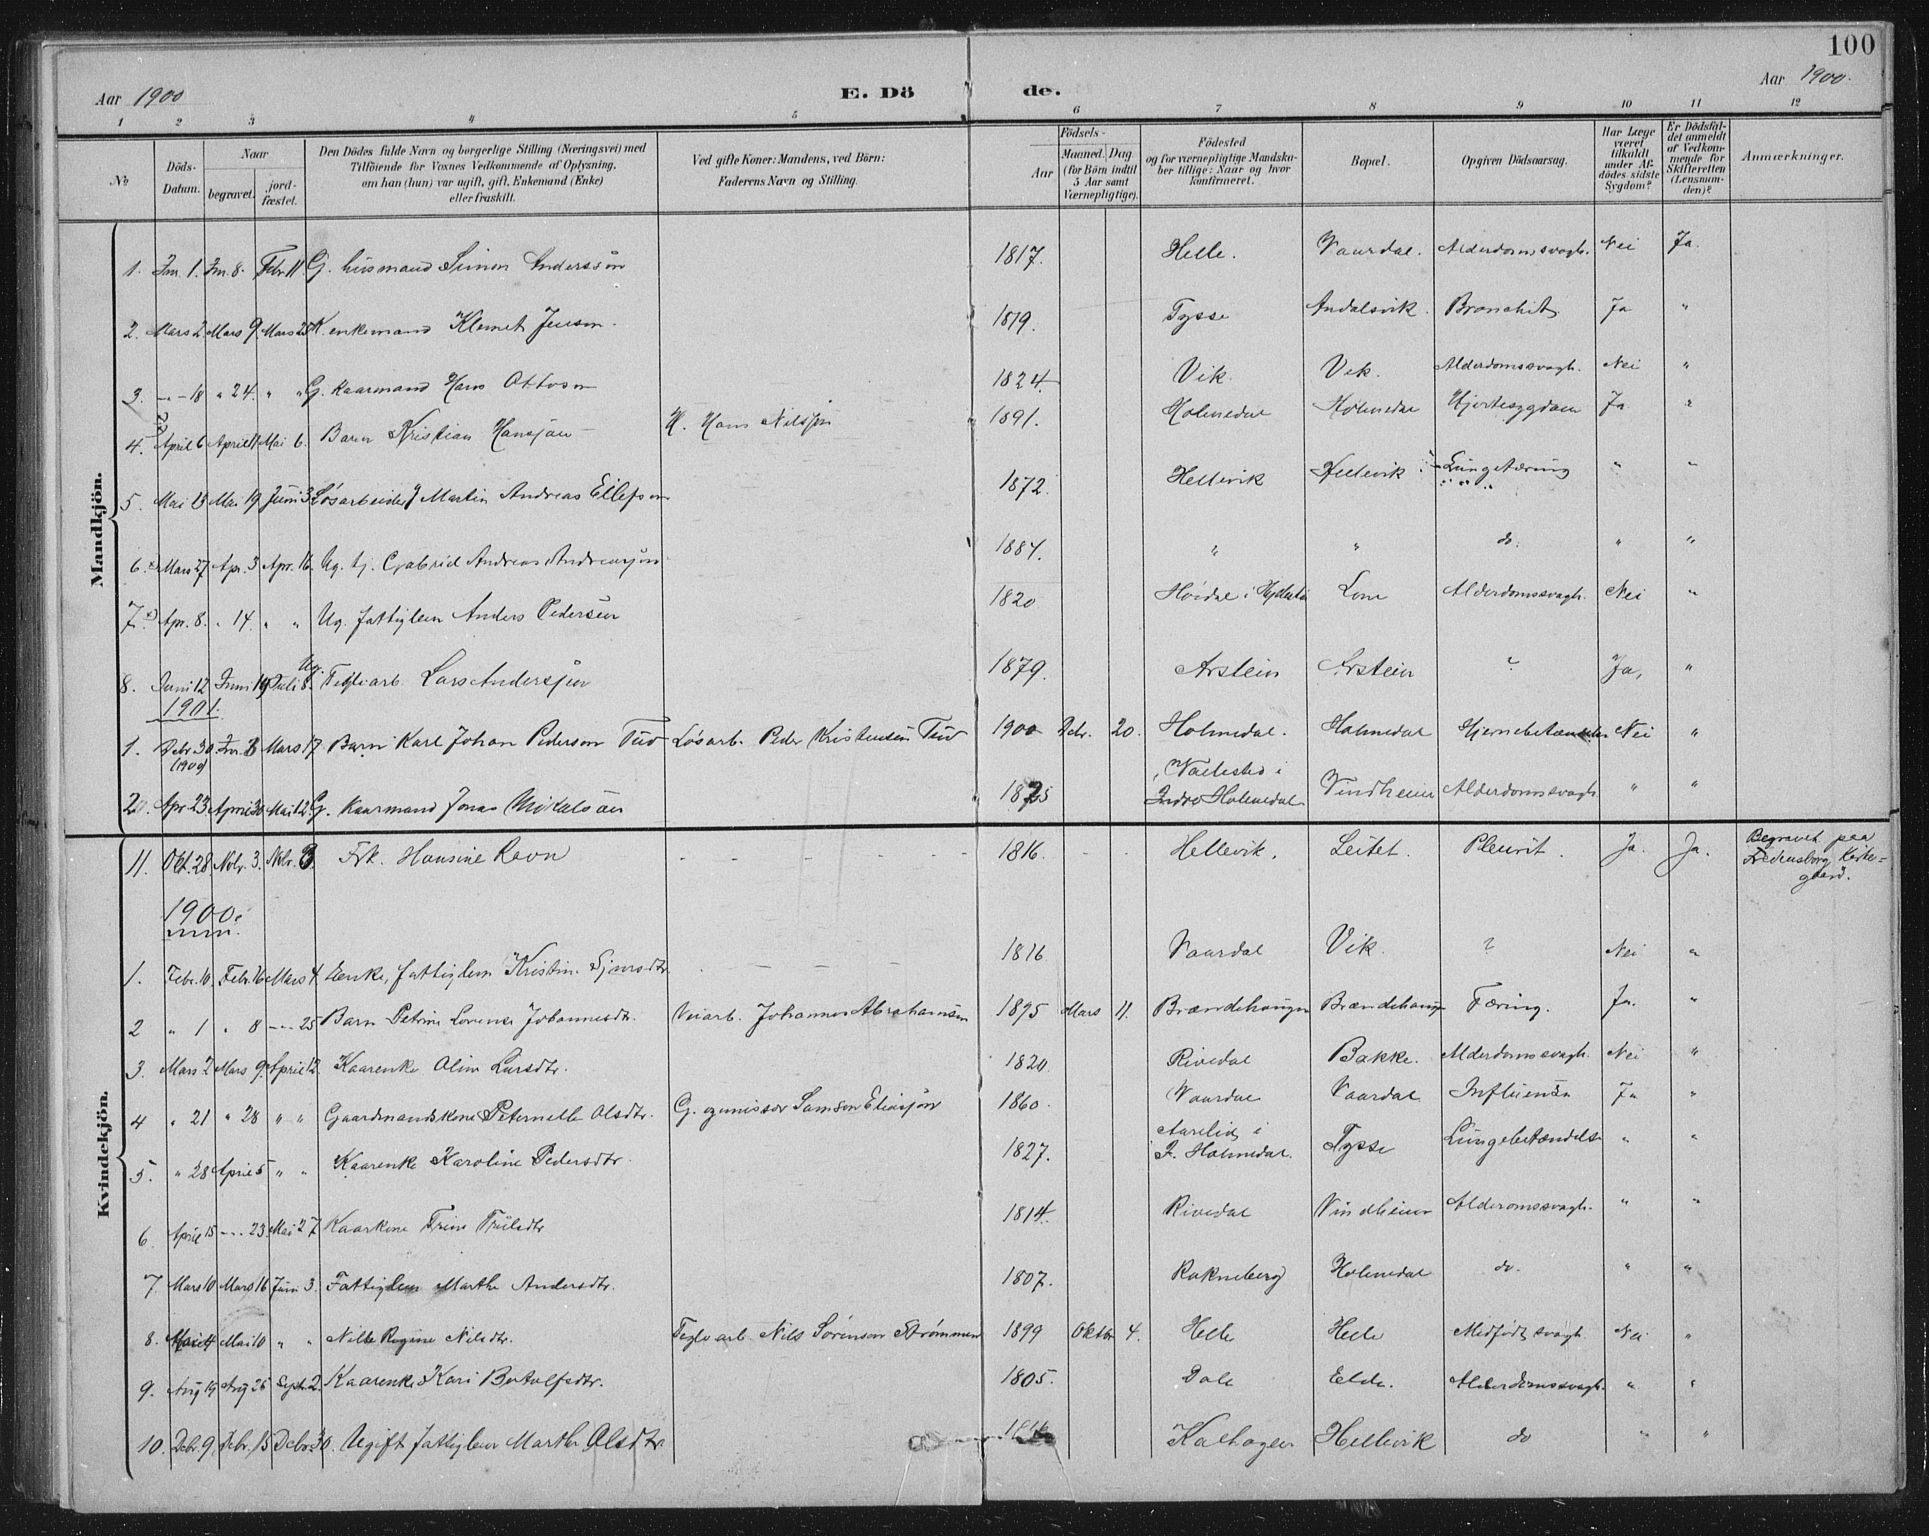 100
Aar 1900
E. Dö
de.
Aar 1900.
1 2 3 4 5 6 7 8 9 10 11 12
No
Döds-Datum.
Naar
begravet.
jord-fæstet.
Den Dödes fulde Navn og borgerlige Stilling (Næringsvei) med
Tilföiende for Voxnes Vedkommende af Oplysning,
om han (hun) var ugift, gift, Enkemand (Enke)
eller fraskilt.
Ved gifte Koner: Mandens, ved Börn:
Faderens Navn og Stilling.
Födsels-
Aar
Maaned. Dag
(for Börn indtil
5 Aar samt
Værnepligtige).
Födested
og for værnepligtige Mandska-
ber tillige: Naar og hvor
konfirmeret.
Bopæl.
Opgiven Dödsaarsag.
Har Læge
været
tilkaldt
under Af-
dødes sidste
Sygdom?
Er Dödsfal-
det anmeldt
af Vedkom-
mende for
Skifteretten
(Lensman-
den)?
Anmærkninger.
Mandkjön.
1. Jan. 1. Jan. 8. Febr. 11 G. husmand Simon Anderssön 1817. Helle. Vaardal. Alderdomssvagh. Nei Ja.
2. Mars 2. Mars 9. Mars 25 K. enkemand Klemet Jenson. 1819. Tysse Andalsvik. Bronchit Ja "
3. - - 18 " 24. " " G. kaarmand Hans Ottosen 1824. Vik. Vik. Alderdomssvagh. Nei "
4. April 6 April 11 Mai 6. Barn Kristian Hansön H. Hans Nilssön 1891. Holmedal Holmedal Hjertesygdom Ja "
5. Mai 13 Mai 19 Juni 3 Løsarbeider Martin Andreas Ellefson 1872. Hellevik Hellevik Lungetæring " "
6. Mars 27 Apr. 3 Apr. 16. Ug. tj. Gabriel Andreas Andreassön 1884. " " do. " "
7. Apr. 8. " 14. " " Ug. fattiglem Anders Pedersen 1820 Høidal i Hyllestad Lone Alderdomssvagh. Nei "
8. Juni 12 Juni 19 Juli 8. Ug. Teglarb. Lars Anderssön 1879. Arstein Arstein ? Ja, "
1901.
1. Debr. 30 (1900) Jan. 8 Mars 17. Barn Karl Johan Pederson Tuv Løsarb. Peder Kristensen Tuv 1900 Debr. 20. Holmedal. Holmedal Hjernebetændelse Nei "
2. Apr. 23 April 30 Mai 12. G. kaarmand Jonas Mikalsön 1825 Vallestad i Indre Holmedal Vindheim Alderdomssvagh " "
Kvindekjön.
11. Okt. 28 Nobr. 3. Nobr. 3. Frk. Hansine Ravn - - - - - - - 1816. - - Hellevik. Leitet. Pleurit. Ja. Ja. Begravet paa Fredensborg Kirke=gaard.
1900:
1. Febr. 10. Febr. 16 Mars 4. Enke, fattiglem Kristine Simsdtr. - - - - 1816 Vaardal Vik. ? Nei "
2 " 1 " 8 - - 25 Barn Petrine Lovense Johannesdtr. Veiarb. Johannes Abrahamsen 1895 Mars 11. Brændehaugen Brændehaug Tæring. Ja. "
3. Mars 2 Mars 9. April 12. Kaarenke Oline Larsdtr. 1820. Rivedal Bakke. Alderdomssvagh. Nei "
4 " 21 " 28 " " Gaardmandskone Peternelle Olsdtr. G. Samson Eliassön 1860. Vaardal Vaardal Influensa Ja "
5. " 28 April 5 " " Kaarenke Karoline Pedersdtr. 1827. Aarelid i I. Holmedal. Tysse Lungebetændelse " "
6. April 15 - - - 23. Mai 27 Kaarkone Trine 1814. Rivedal Vindheim Alderomssvagh. " "
7. Mars 10 Mars 16 Juni 3. Fattiglem Marthe Andersdtr. 1807. Rakneberg Holmedal do. " "
8. Mai 4 Mai 10 " " Nille Regine Nilsdtr. Teglvarb. Nils Sörenson Strømmen 1899 Oktbr 4. Helle Helle Medfødt svagh. Nei "
9. Aug 19 Aug 26 Sept. 2. Kaarenke Kari Botolfsdtr. 1805. Dale Elde. Alderdomssvagh. " "
10. Debr. 9. Debr. 15 Debr. 30. Ugift fattiglem Marthe Olsdtr. Kalhagen Hellevik do " "